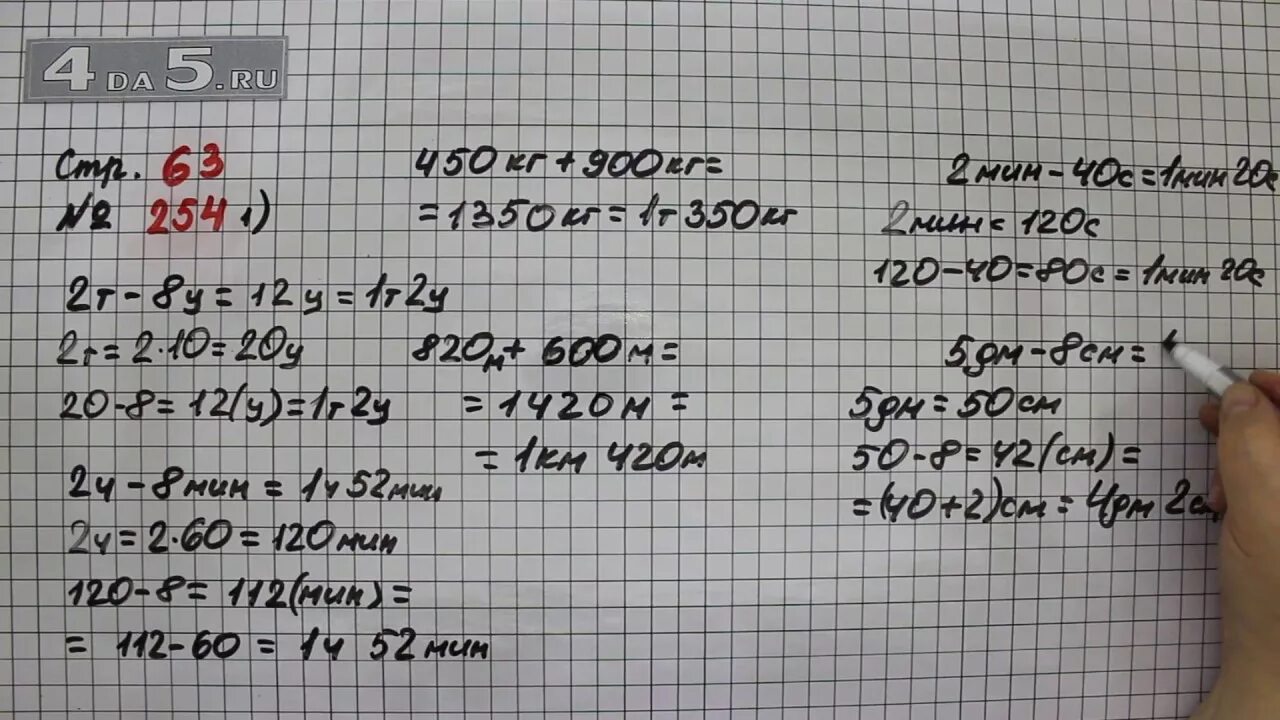 4DA5.RU
Стр. 63
№ 254 1)
2т - 8ц = 12ц = 1т2ц
2т = 2·10 = 20ц
20-8 = 12(ц) = 1т2ц
2ч - 8мин = 1ч 52мин
2ч = 2·60 = 120мин
120-8 = 112(мин) =
= 112-60 = 1ч 52мин
450кг + 900кг =
= 1350кг = 1т350кг
820м + 600м =
= 1420м =
= 1км 420м
2мин - 40с = 1мин20с
2мин = 120с
120-40 = 80с = 1мин20с
5дм - 8см =
5дм = 50см
50-8 = 42(см) =
= (40+2)см = 4дм 2см